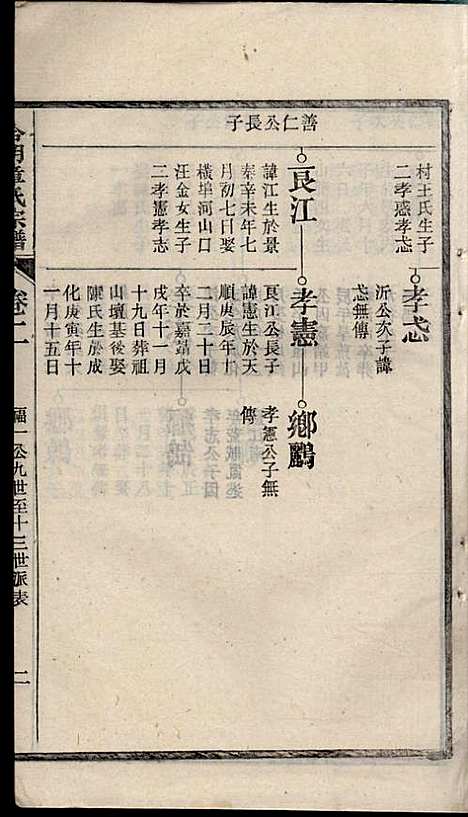 善仁公長子
村王氏生子
二孝惑孝忒
孝忒
沂公次子諱
忒無傳
良江
諱江生於景
泰辛未年七
月初七日娶
橫埠河山口
汪金女生子
二孝憲孝志
孝憲
良江公長子
諱憲生於天
順庚辰年十
二月二十日
卒於嘉靖戊
戌年十一月
十九日葬祖
山壠基後娶
陳氏生於成
化庚寅年十
一月十五日
鄉鸝
孝憲公子無
傳
章氏宗譜
卷二
福一公九世至十三世派表
二